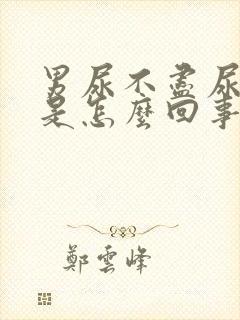 男尿不盡尿
是怎麼回事
鄭雲峰